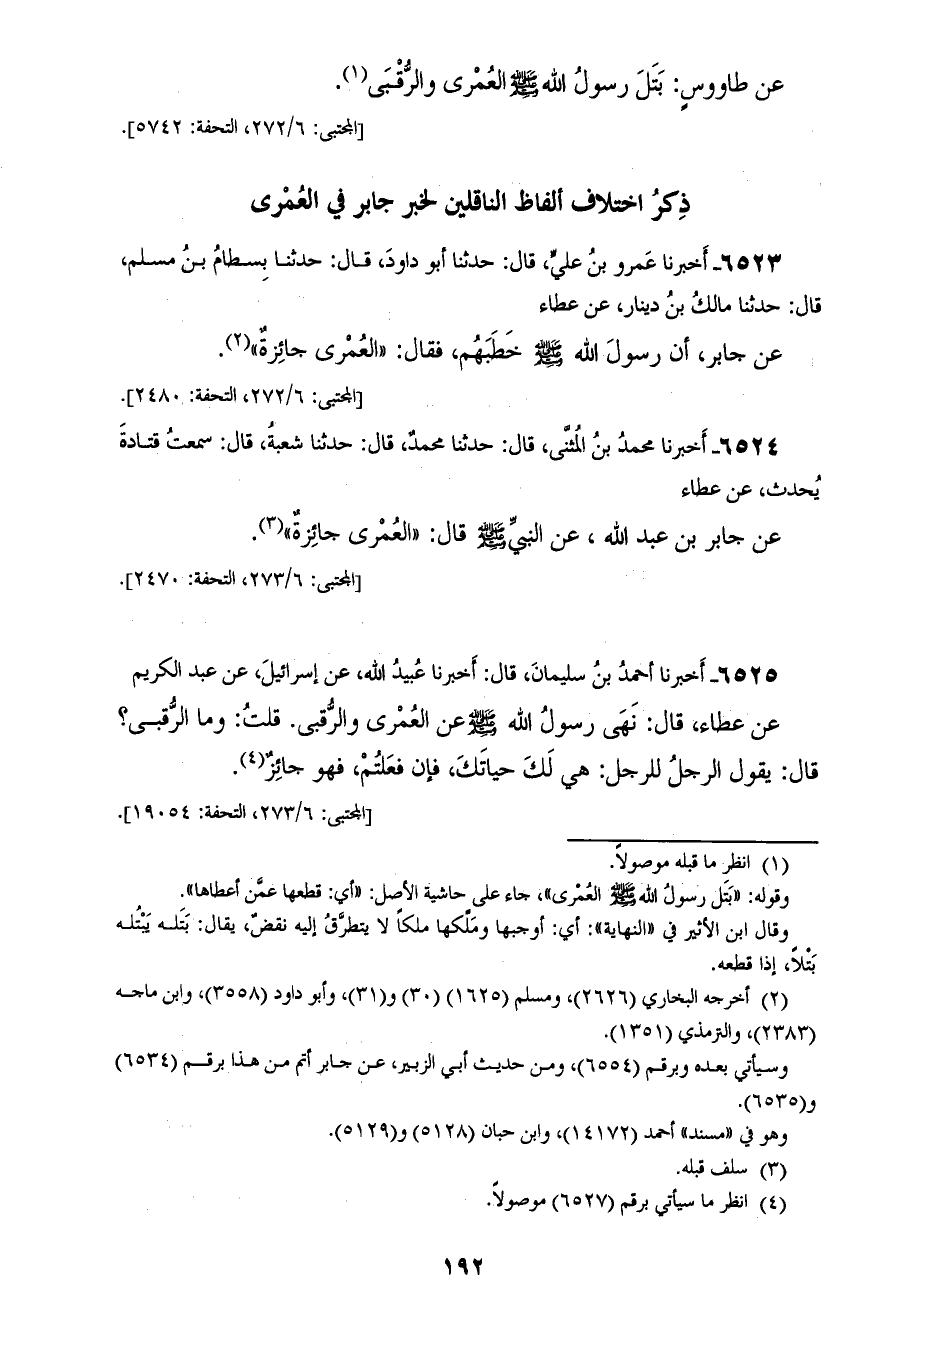 عن طاووسٍ: بَتَلَ رسولُ الله ﷺ العُمْرى والرُّقْبَى(١).
[المجتبى: ٢٧٢/٦، التحفة: ٥٧٤٢].
ذِكرُ اختلاف ألفاظ الناقلين لخبر جابر في العُمْرى
٦٥٢٣ـ أَخبرنا عَمرو بنُ عليٍّ، قال: حدثنا أبو داودَ، قـال: حدثنـا بِسـطامُ بـنُ مسـلم،
قال: حدثنا مالكُ بنُ دينار، عن عطاء
عن جابر، أن رسولَ الله ﷺ خَطَبَهُم، فقال: «العُمْرى جائزةٌ»(٢).
[المجتبى: ٢٧٢/٦، التحفة: ٢٤٨٠].
٦٥٢٤ـ أَخبرنا محمدُ بنُ المُثنَّى، قال: حدثنا محمدٌ، قال: حدثنا شعبةُ، قال: سمعتُ قتـادةَ
يُحدث، عن عطاء
عن جابر بن عبد الله ، عن النبيِّ ﷺ قال: «العُمْرى جائِزةٌ»(٣).
[المجتبى: ٢٧٣/٦، التحفة: ٢٤٧٠].
٦٥٢٥ـ أَخبرنا أحمدُ بنُ سليمانَ، قال: أَخبرنا عُبيدُ الله، عن إسرائيلَ، عن عبد الكريم
عن عطاء، قال: نَهَى رسولُ الله ﷺ عن العُمْرى والرُّقبى. قلتُ: وما الرُّقبـى؟
قال: يقول الرجلُ للرجل: هي لَكَ حياتَكَ، فإن فعَلتُمْ، فهو جائزٌ(٤).
[المجتبى: ٢٧٣/٦، التحفة: ١٩٠٥٤].
(١) انظر ما قبله موصولاً.
وقوله: «بَتَل رسولُ الله ﷺ العُمْرى»، جاء على حاشية الأصل: «أي: قطعها عمَّن أعطاها».
وقال ابن الأثير في «النهاية»: أي: أوجبها ومَلَّكها ملكاً لا يتطرَّقُ إليه نقضٌ، يقال: بَتَلـه يَبْتُلـه
بَتْلاً، إذا قطعه.
(٢) أخرجه البخاري (٢٦٢٦)، ومسلم (١٦٢٥) (٣٠) و(٣١)، وأبو داود (٣٥٥٨)، وابن ماجـه
(٢٣٨٣)، والترمذي (١٣٥١).
وسيأتي بعده وبرقم (٦٥٥٤)، ومـن حديث أبـي الزبير، عـن جـابر أتم مـن هـذا برقـم (٦٥٣٤)
و(٦٥٣٥).
وهو في «مسند» أحمد (١٤١٧٢)، وابن حبان (٥١٢٨) و(٥١٢٩).
(٣) سلف قبله.
(٤) انظر ما سيأتي برقم (٦٥٢٧) موصولاً.
١٩٢